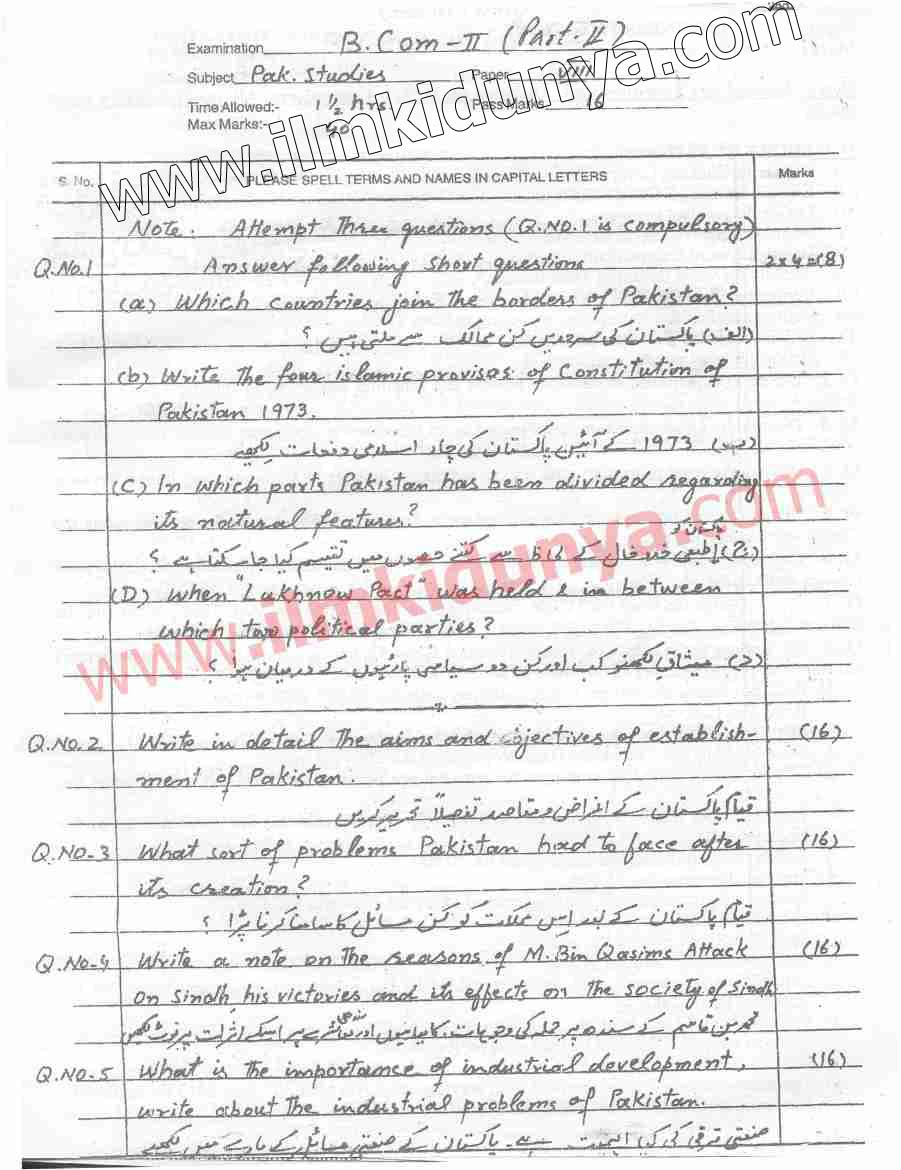 Examination B.Com-II (Part-II)
Subject Pak. Studies Paper VIII
Time Allowed:- 1½ hrs Pass Marks 16
Max Marks:- 40
www.ilmkidunya.com
S. No. PLEASE SPELL TERMS AND NAMES IN CAPITAL LETTERS Marks
Note. Attempt three questions (Q.NO.1 is compulsory)
Q.No.1 Answer following short questions 2x4=(8)
(a) Which countries join the borders of Pakistan?
(الف) پاکستان کی سرحدیں کن ممالک سے ملتی ہیں ؟
(b) Write the four islamic provisos of Constitution of
Pakistan 1973.
(ب) 1973 کے آئین پاکستان کی چار اسلامی دفعات لکھیے
(C) In which parts Pakistan has been divided regarding
its natural features?
پاکستان کو
(ج) طبعی خدوخال کے لحاظ سے کتنے حصوں میں تقسیم کیا جا سکتا ہے ؟
(D) When "Lukhnow Pact" was held & in between
which two political parties?
(د) میثاق لکھنو کب اور کن دو سیاسی پارٹیوں کے درمیان ہوا ؟
www.ilmkidunya.com
Q.No.2 Write in detail the aims and objectives of establish- (16)
ment of Pakistan.
قیام پاکستان کے اغراض و مقاصد تفصیلاً تحریر کریں
Q.NO-3 What sort of problems Pakistan had to face after (16)
its creation?
قیام پاکستان کے بعد اس مملکت کو کن مسائل کا سامنا کرنا پڑا ؟
Q.No-4 Write a note on the reasons of M.Bin Qasims Attack (16)
on sindh his victories and its effects on the society of Sindh
محمد بن قاسم کے سندھ پر حملہ کی وجوہات، کامیابیوں اور سندھی معاشرے پر اسکے اثرات پر نوٹ لکھیں
Q.NO-5 What is the importance of industrial development, (16)
write about the industrial problems of Pakistan.
صنعتی ترقی کی کیا اہمیت ہے۔ پاکستان کے صنعتی مسائل کے بارے میں لکھیے